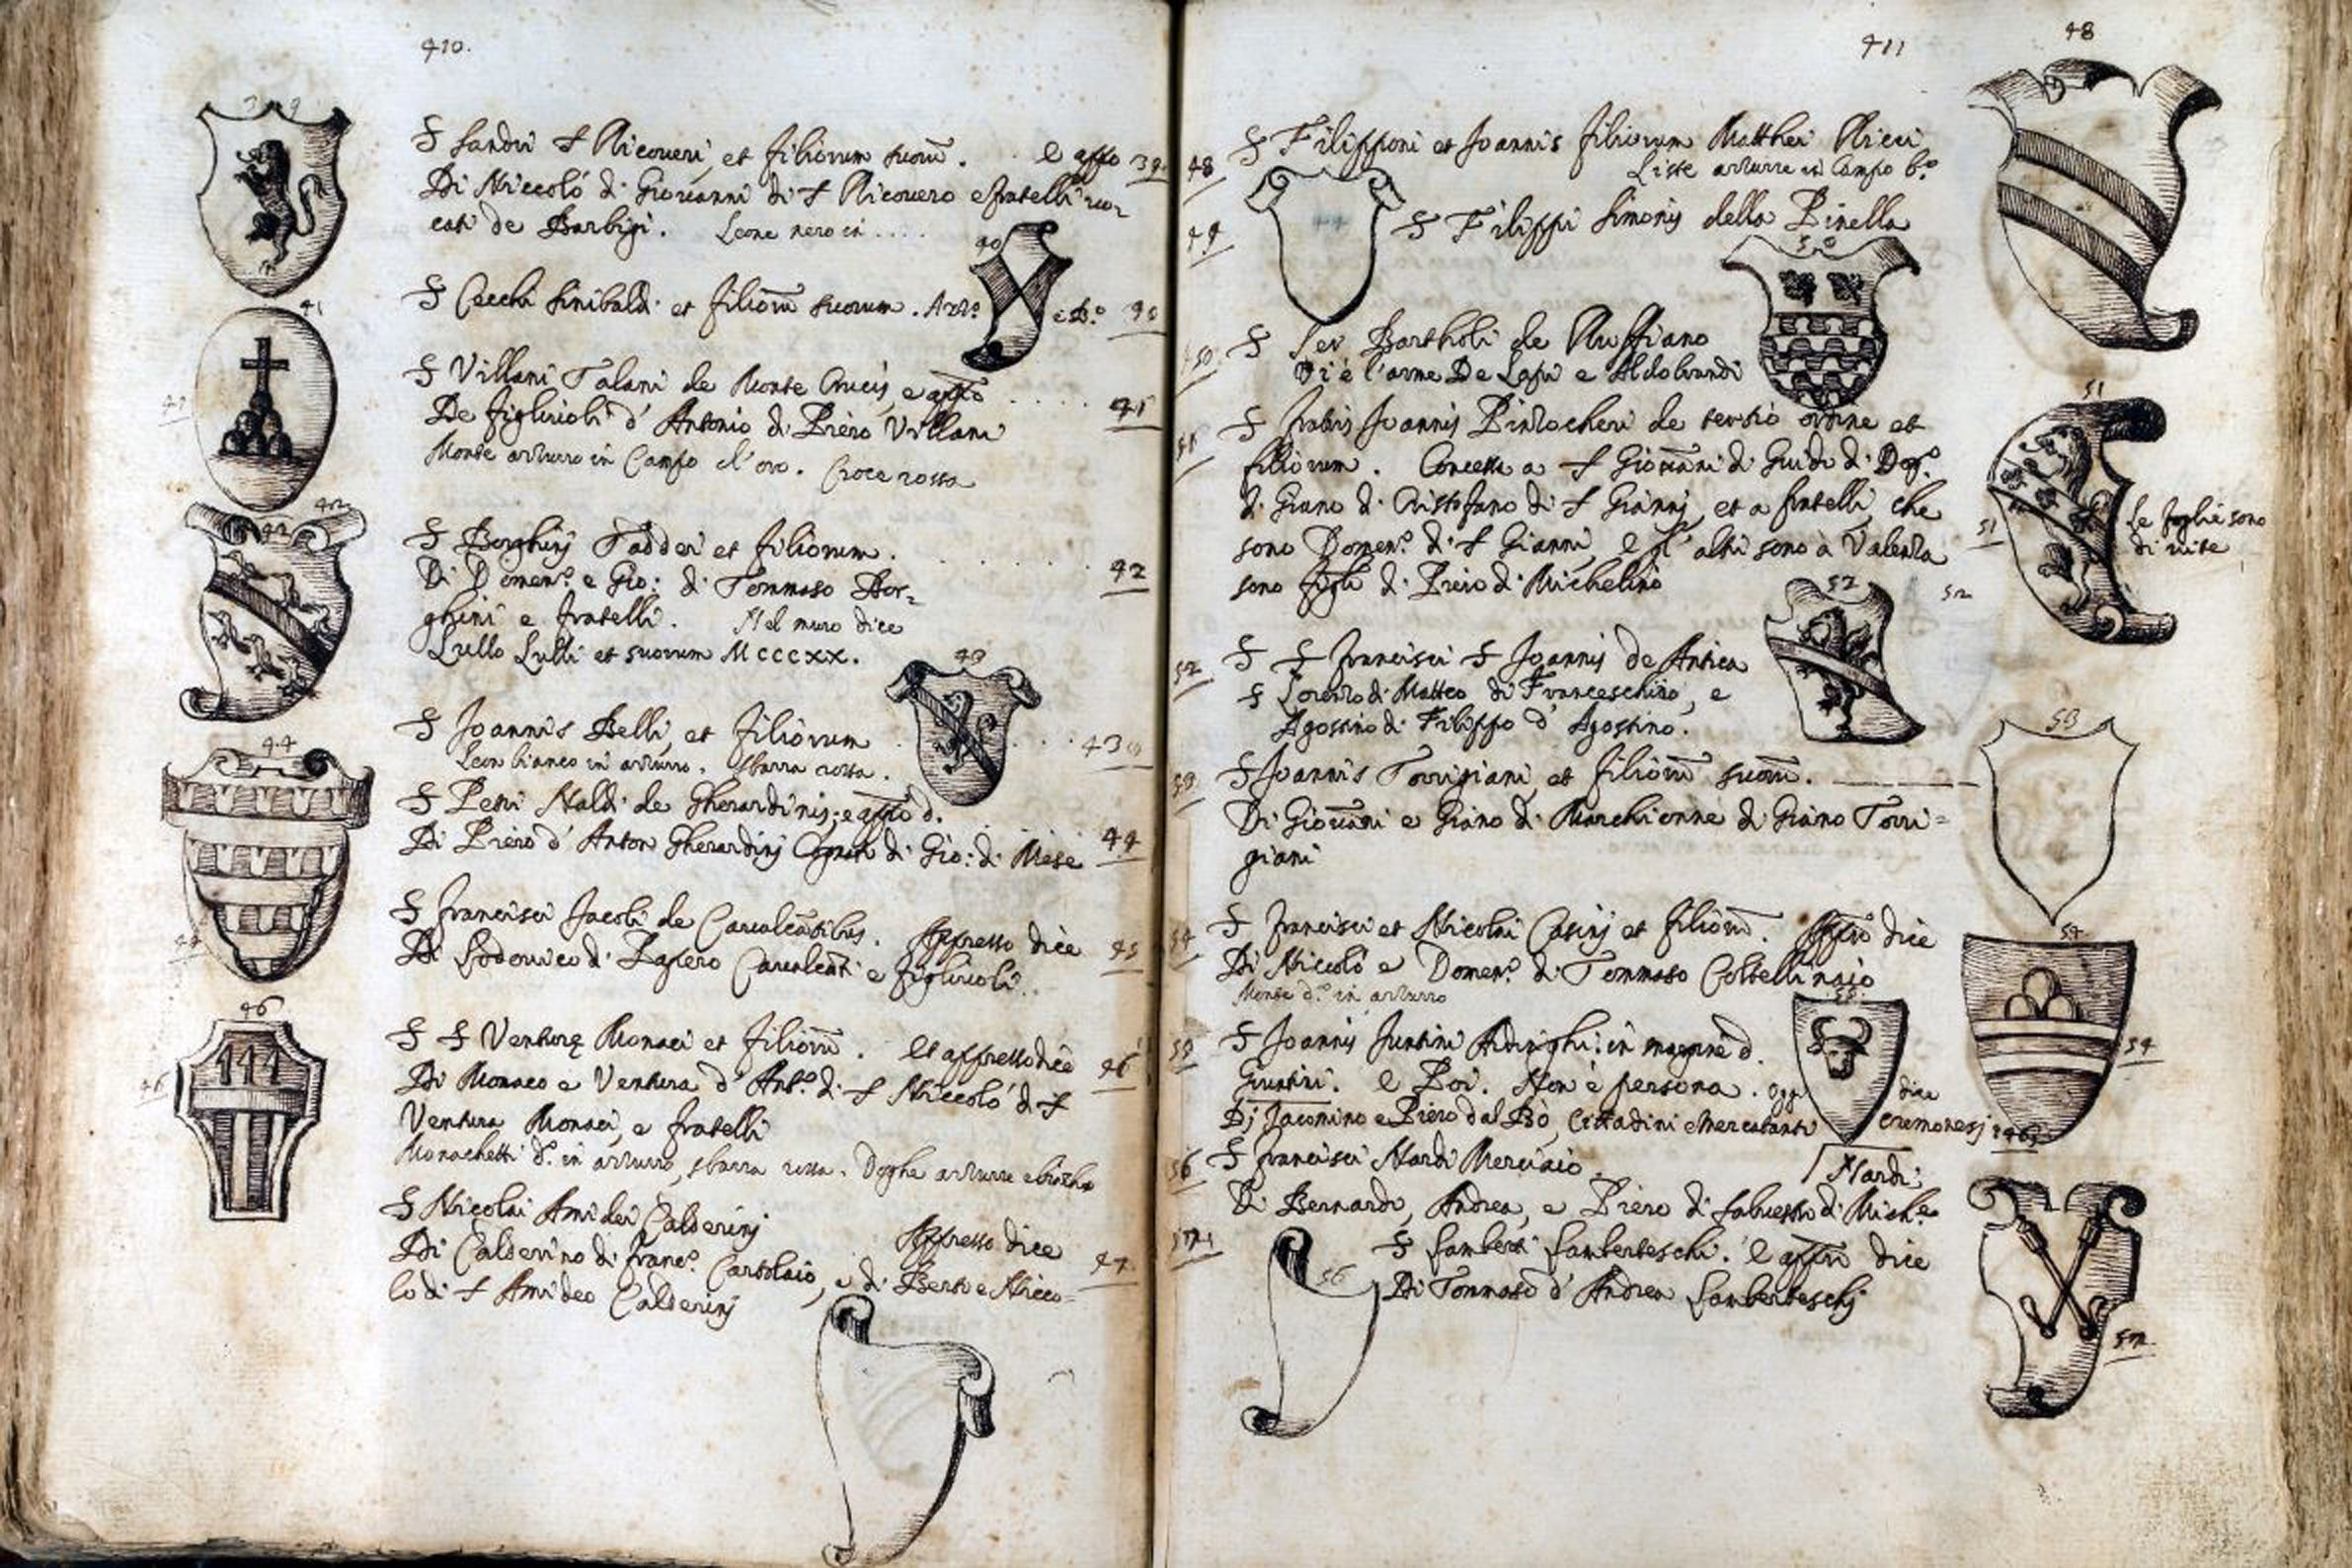 410.
39
S Sandri S Ricoveri, et filiorum suorũ. e appo 39.
Di Niccolò di Giovanni di S Ricovero e fratelli vo-
cati de Barbigi. Leone nero in ....
40
S Cecchi Sinibaldi et filiorũ suorum. Azzo. e Bo. 40
41
S Villani Talani de Monte Crucis, e appo ..... 41
De figliuoli d'Antonio di Piero Villani
Monte azzurro in Campo d'oro. Croce rossa
42
S Borghinj Taddei et filiorum. ...... 42
Di Domen.o e Gio: di Tommaso Bor-
ghini e fratelli. Nel muro dice
Lullo Lulli et suorum Mcccxx.
43
S Joannis Belli, et filiorum .... 43
Leon bianco in azzurro. sbarra rossa.
44
S Petri Naldi de Gherardinis; e appo d.
Di Piero d'Anton Gherardinj di Gio: di 44
S Francisci Jacobi de Cavalcãtibus. Appresso dice 45
Di Lodovico di Cavalcãti e figliuoli.
46
S S Venturę Monaci et filiorũ. Et appresso dice 46
Di Monaco e Ventura d'Ant.o di S Niccolò di S
Ventura Monaci, e fratelli
Monachetti d.o in azzurro, sbarra rossa. Doghe azzurre e bianche
S Nicolai Amidei Calderinj Appresso dice 47
Di Calderino di Franc.o Cartolaio, e di Berto e Nicco-
lo di S Amideo Calderinj
411
48
48 S Filipponi et Joannis filiorum Matthei Ricci
Liste azzurre in Campo b.o
49 S Filippi Simonis della Pinella
50
50 S Ser Bartholi de Ruffiano
Vi è l'arme De Lapi e Aldobrandi
51
51 S Fratris Joannis Pinzocheri de tertio ordine et
filiorum. Concessa a S Giovãni di Guido di Dom.o
di Giano di Cristofano di S Gianni, et a fratelli, che
sono Domen.o di S Gianni, e gl'altri sono à Valenza
sono figli di Piero di Michelino
Le foglie sono
di vite
52
52 S S Francisci S Joannis de Antica
S Lorenzo di Matteo di Franceschino, e
Agostino di Filippo d'Agostino.
53
53 S Joannis Torrigiani, et filiorũ suorũ.
Di Giovãni e Giano di Marchionne di Giano Torri=
giani
54
54 S Francisci et Nicolai Casinj et filiorũ. Appro dice
Di Niccolò e Domen.o di Tommaso Coltellinaio
Monte d.o in azzurro
55
55 S Joannis Juntini in d.
Giuntini. e Boi. Non è persona. oggi dice
Di Jacomino e Piero dal Bò, Cittadini e Mercatanti cremonesj
56 S Francisci Nardi Merciaio. Nardi
Di Bernardo, Andrea, e Piero di di Mich.e
57 S Lamberti Lamberteschi. e appro dice
Di Tommaso d'Andrea Lamberteschj
56
57